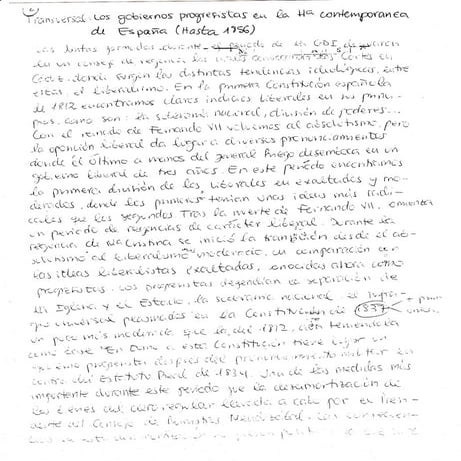 Transversal: Los gobiernos progresistas en la Hª contemporanea
de España (Hasta 1956)
Las Juntas formadas durante el periodo de la GDI derivaron
en un consejo de regencia, las cuales convocaron Cortes en
Cádiz, donde surgen las distintas tendencias ideológicas, entre
ellas, el liberalismo. En la primera Constitución española
de 1812 encontramos claros indicios liberales en sus princi-
pios, como son: la soberanía nacional, división de poderes...
Con el reinado de Fernando VII volvemos al absolutismo, pero
la oposición liberal da lugar a diversos pronunciamientos
donde el último a manos del general Riego desemboca en un
gobierno liberal de tres años. En este período encontramos
la primera división de los liberales en exaltados y mo-
derados, donde los primeros tenían unas ideas más radi-
cales que los segundos. Tras la muerte de Fernando VII, comienza
un periodo de regencias de carácter liberal. Durante la
regencia de Mª Cristina se inició la transición desde el ab-
solutismo al liberalismo moderado, en comparación con
las ideas liberalistas exaltadas, conocidas ahora como
progresistas. Los progresistas defendían la separación de
la Iglesia y el Estado, la soberanía nacional, el sufra-
gio universal plasmados en la Constitución de 1837
un poco más moderada que la de 1812, aún teniendola
como base. En cuanto a esta Constitución tiene lugar un
gobierno progresista después del pronunciamiento militar en
contra del Estatuto Real de 1834. Una de las medidas más
importante durante este periodo fue la desamortización de
los bienes del clero regular llevada a cabo por el Presi-
dente del Consejo de Ministros Mendizábal. Las consecuen-